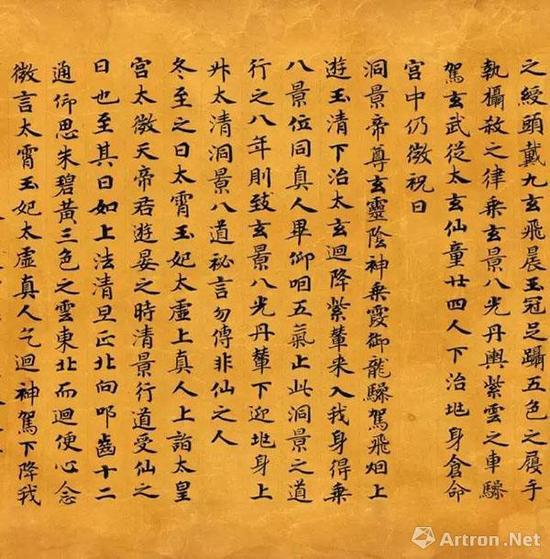 之綬頭戴九玄飛晨玉冠足躡五色之履手
執攝殺之律乘玄景八光丹輿紫雲之車驂
駕玄武從太玄仙童廿四人下治兆身倉命
宮中仍微祝曰
洞景帝尊玄靈陰神乘霞御龍驂駕飛烟上
遊玉清下治太玄迴降紫輦來入我身得乘
八景位同真人畢仰咽五氣止此洞景之道
行之八年則致玄景八光丹輦下迎兆身上
升太清洞景八道祕言勿傳非仙之人
冬至之日太霄玉妃太虛上真人上詣太皇
宮太微天帝君遊晏之時清景行道受仙之
日也至其日如上法清旦正北向叩齒十二
通仰思朱碧黃三色之雲東北而迴便心念
微言太霄玉妃太虛真人乞迴神駕下降我
Artron.Net